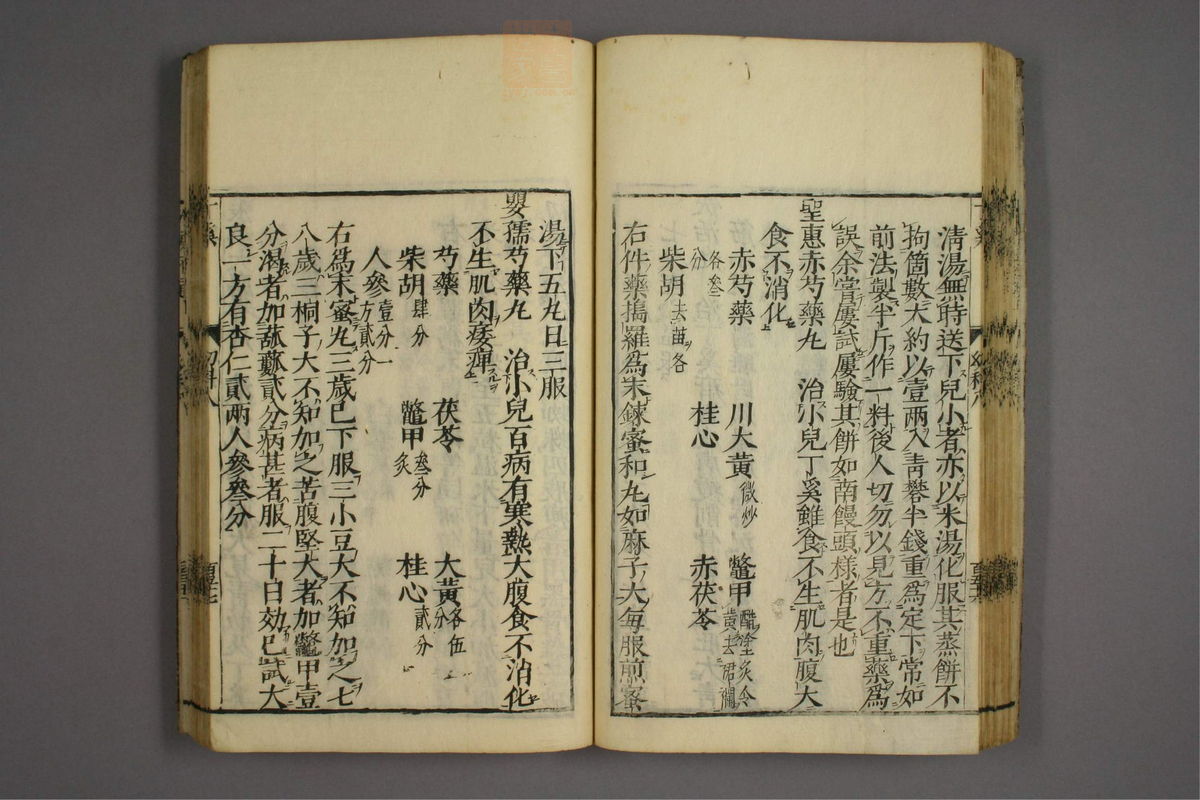 淸湯無時送下兒小者亦以米湯化服其蒸餅不
拘箇數大約以壹兩入靑礬半錢重爲定下常如
前法製半斤作一料後人切勿以見方不重藥爲
誤余嘗屢試屢驗其餅如南饅頭樣者是也
聖惠赤芍藥丸 治小兒丁奚雖食不生肌肉腹大
食不消化
赤芍藥 川大黃微炒 鼈甲醋塗炙令黃去裙襴
各叁分
柴胡去苗各 桂心 赤茯苓
右件藥搗羅爲末鍊蜜和丸如麻子大每服煎蜜
湯下五丸日三服
嬰孺芍藥丸 治小兒百病有寒熱大腹食不消化
不生肌肉痿痺
芍藥 茯苓 大黃各伍分
柴胡肆分 鼈甲叁分炙 桂心貳分
人參壹分一方貳分
右爲末蜜丸三歲已下服三小豆大不知加之七
八歲三桐子大不知加之苦腹堅大者加鼈甲壹
分渴者加蔬貳分病甚者服二十日効已試大
良一方有杏仁貳兩人參叁分